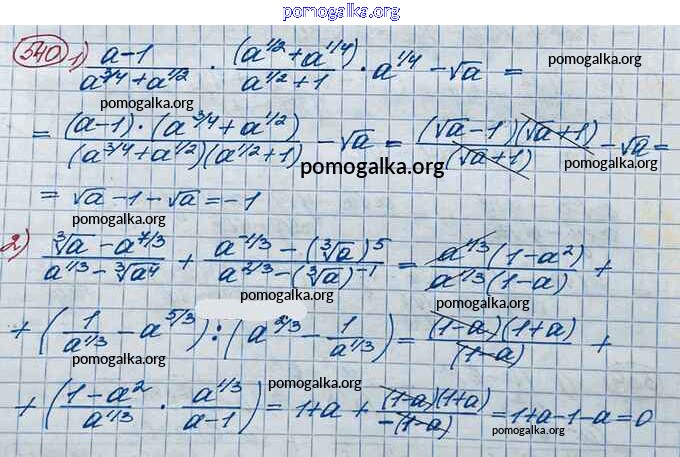 pomogalka.org
540 1) (a-1)/(a^(3/4) + a^(1/2)) · (a^(1/2) + a^(1/4))/(a^(1/2) + 1) · a^(1/4) - √a =
pomogalka.org
pomogalka.org
= ((a-1) · (a^(3/4) + a^(1/2)))/((a^(3/4) + a^(1/2))(a^(1/2) + 1)) - √a = ((√a - 1)(√a + 1))/(√a + 1) - √a =
pomogalka.org
pomogalka.org
= √a - 1 - √a = -1
pomogalka.org
2) (∛a - a^(7/3))/(a^(1/3) - ∛a⁴) + (a^(-1/3) - (∛a)^5)/(a^(2/3) - (∛a)^(-1)) = (a^(1/3)(1-a²))/(a^(1/3)(1-a)) +
pomogalka.org
pomogalka.org
+ (1/a^(1/3) - a^(5/3)) : (a^(2/3) - 1/a^(1/3)) = ((1-a)(1+a))/(1-a) +
pomogalka.org
pomogalka.org
+ ((1-a²)/a^(1/3) · a^(1/3)/(a-1)) = 1+a + ((1-a)(1+a))/(-(1-a)) = 1+a-1-a=0
pomogalka.org
pomogalka.org